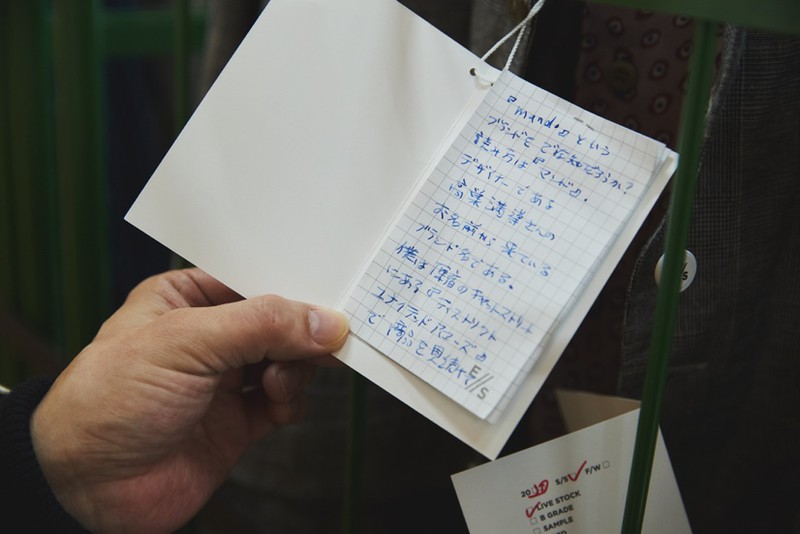 『mando』という
ブランドをご存知でしょうか?
読み方は『マンド』。
デザイナーである
高巣満導さんの
お名前から来ている
ブランド名である。
僕は原宿のキャットストリート
にある『ディストリクト
ユナイテッドアローズ』
で『商品』を見続けて
E//S
S
2019 S/S F/W
LIVE STOCK
B GRADE
SAMPLE